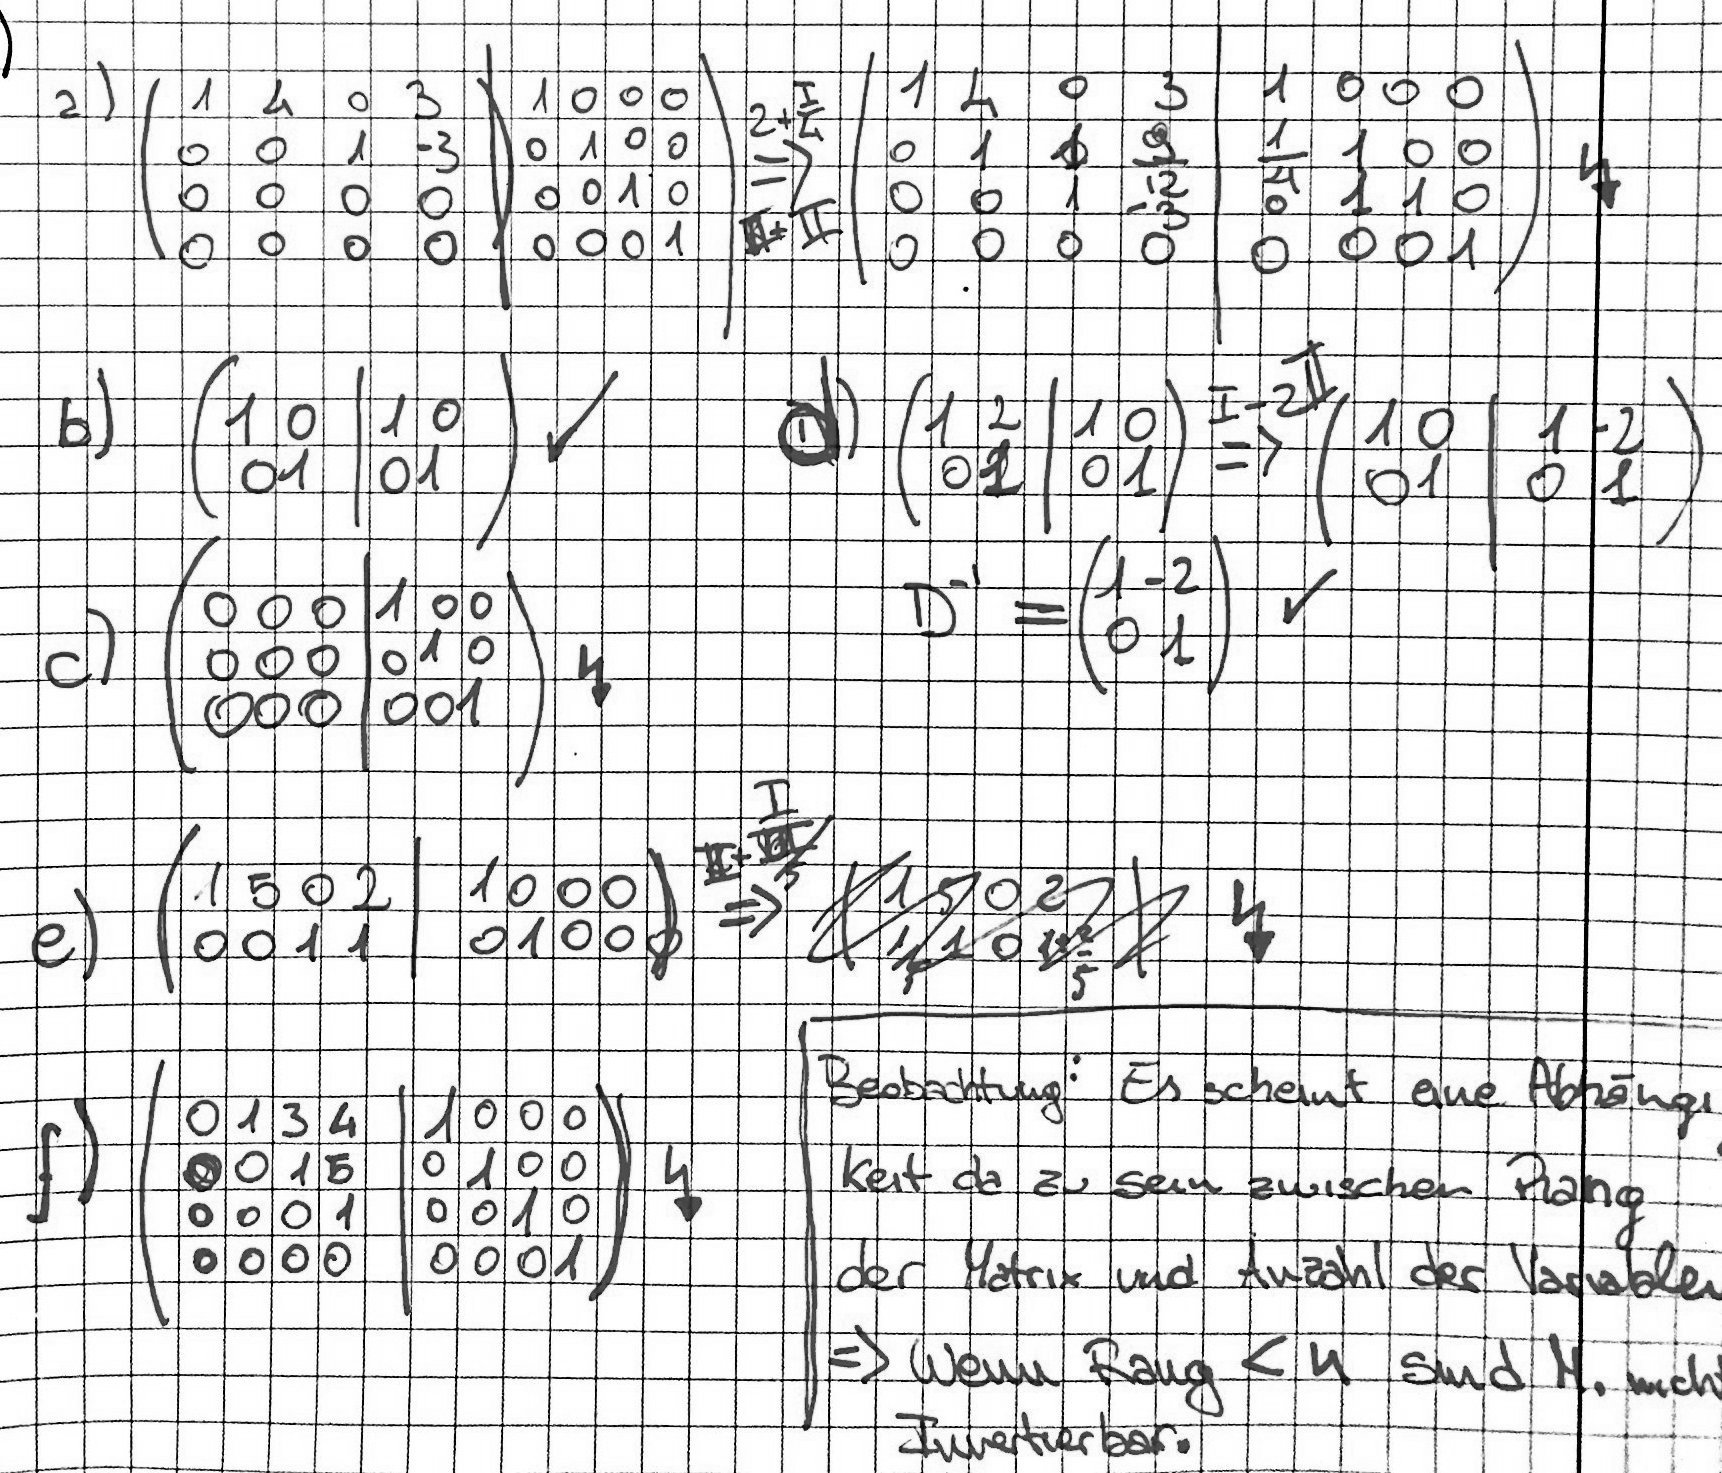 a) ( 1 4 0 3 | 1 0 0 0 ) 2+I/4 => ( 1 4 0 3 | 1 0 0 0 )
( 0 0 1 -3 | 0 1 0 0 ) ( 0 1 1 | 1/4 1 0 0 ) ↯
( 0 0 0 0 | 0 0 1 0 ) ( 0 0 1 -3 | 0 1 1 0 )
( 0 0 0 0 | 0 0 0 1 ) ( 0 0 0 0 | 0 0 0 1 )
b) ( 1 0 | 1 0 ) ✓
( 0 1 | 0 1 )
d) ( 1 2 | 1 0 ) I-2II => ( 1 0 | 1 -2 )
( 0 1 | 0 1 ) ( 0 1 | 0 1 )
D⁻¹ = ( 1 -2 ) ✓
( 0 1 )
c) ( 0 0 0 | 1 0 0 )
( 0 0 0 | 0 1 0 ) ↯
( 0 0 0 | 0 0 1 )
e) ( 1 5 0 2 | 1 0 0 0 ) => ( 1 5 0 2 | ↯
( 0 0 1 1 | 0 1 0 0 )
f) ( 0 1 3 4 | 1 0 0 0 )
( 0 0 1 5 | 0 1 0 0 ) ↯
( 0 0 0 1 | 0 0 1 0 )
( 0 0 0 0 | 0 0 0 1 )
Beobachtung: Es scheint eine Abhängi
keit da zu sein zwischen Rang
der Matrix und Anzahl der Variablen
=> Wenn Rang < n sind M. nicht
Invertierbar.